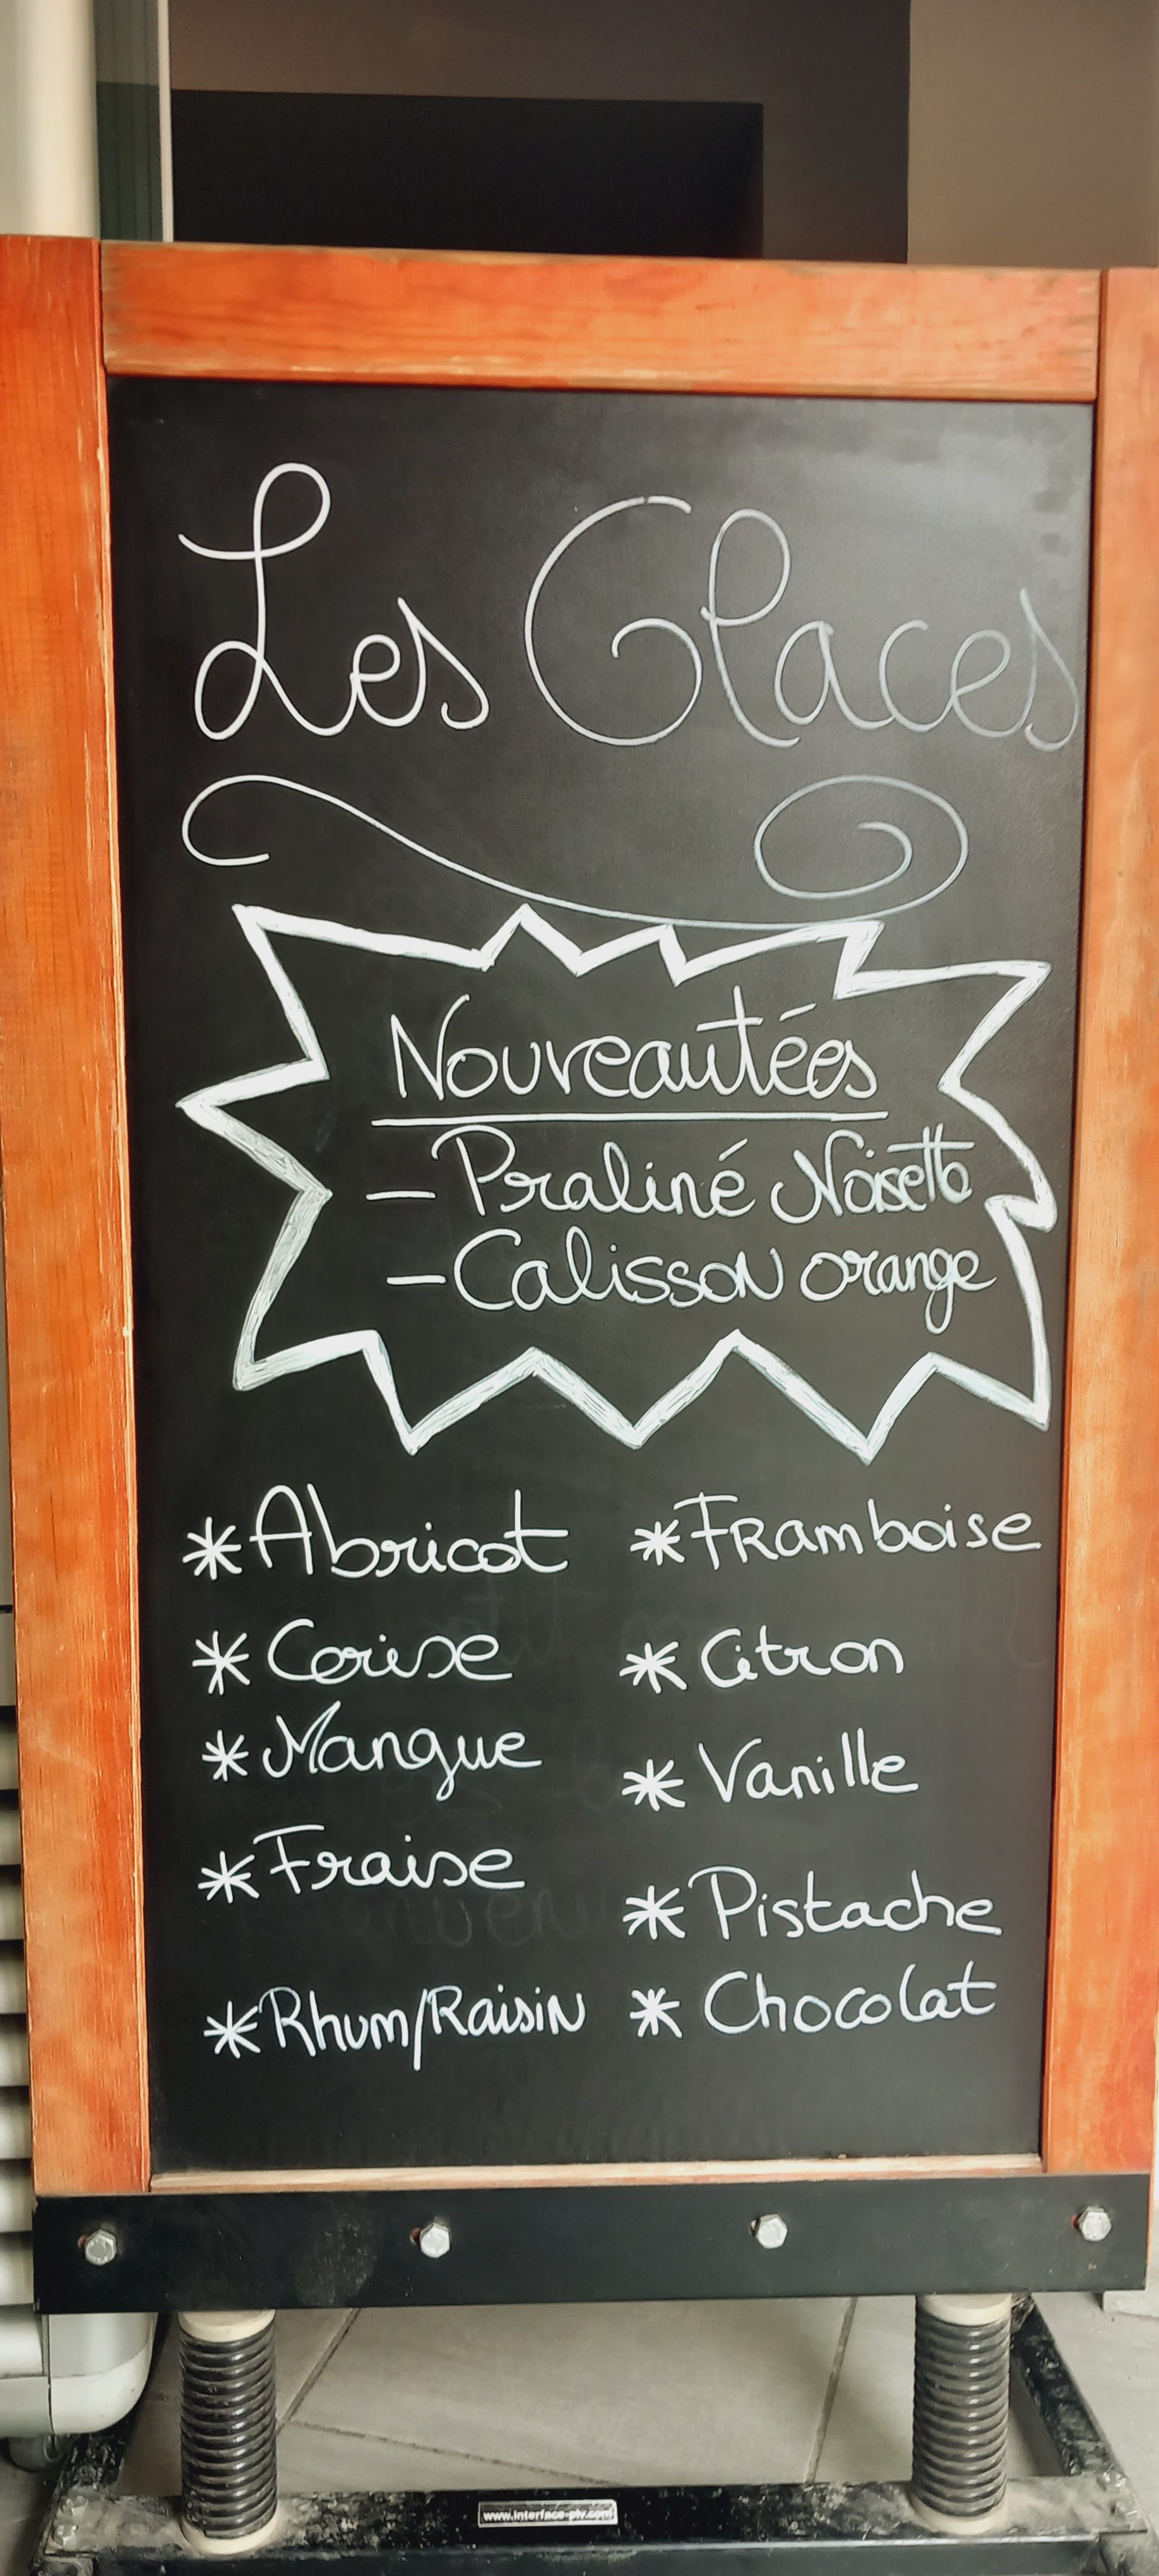 Les Glaces
Nouveautées
- Praliné Noisette
- Calisson orange
* Abricot
* Cerise
* Mangue
* Fraise
* Rhum/Raisin
* Framboise
* Citron
* Vanille
* Pistache
* Chocolat
www.interface-plv.com